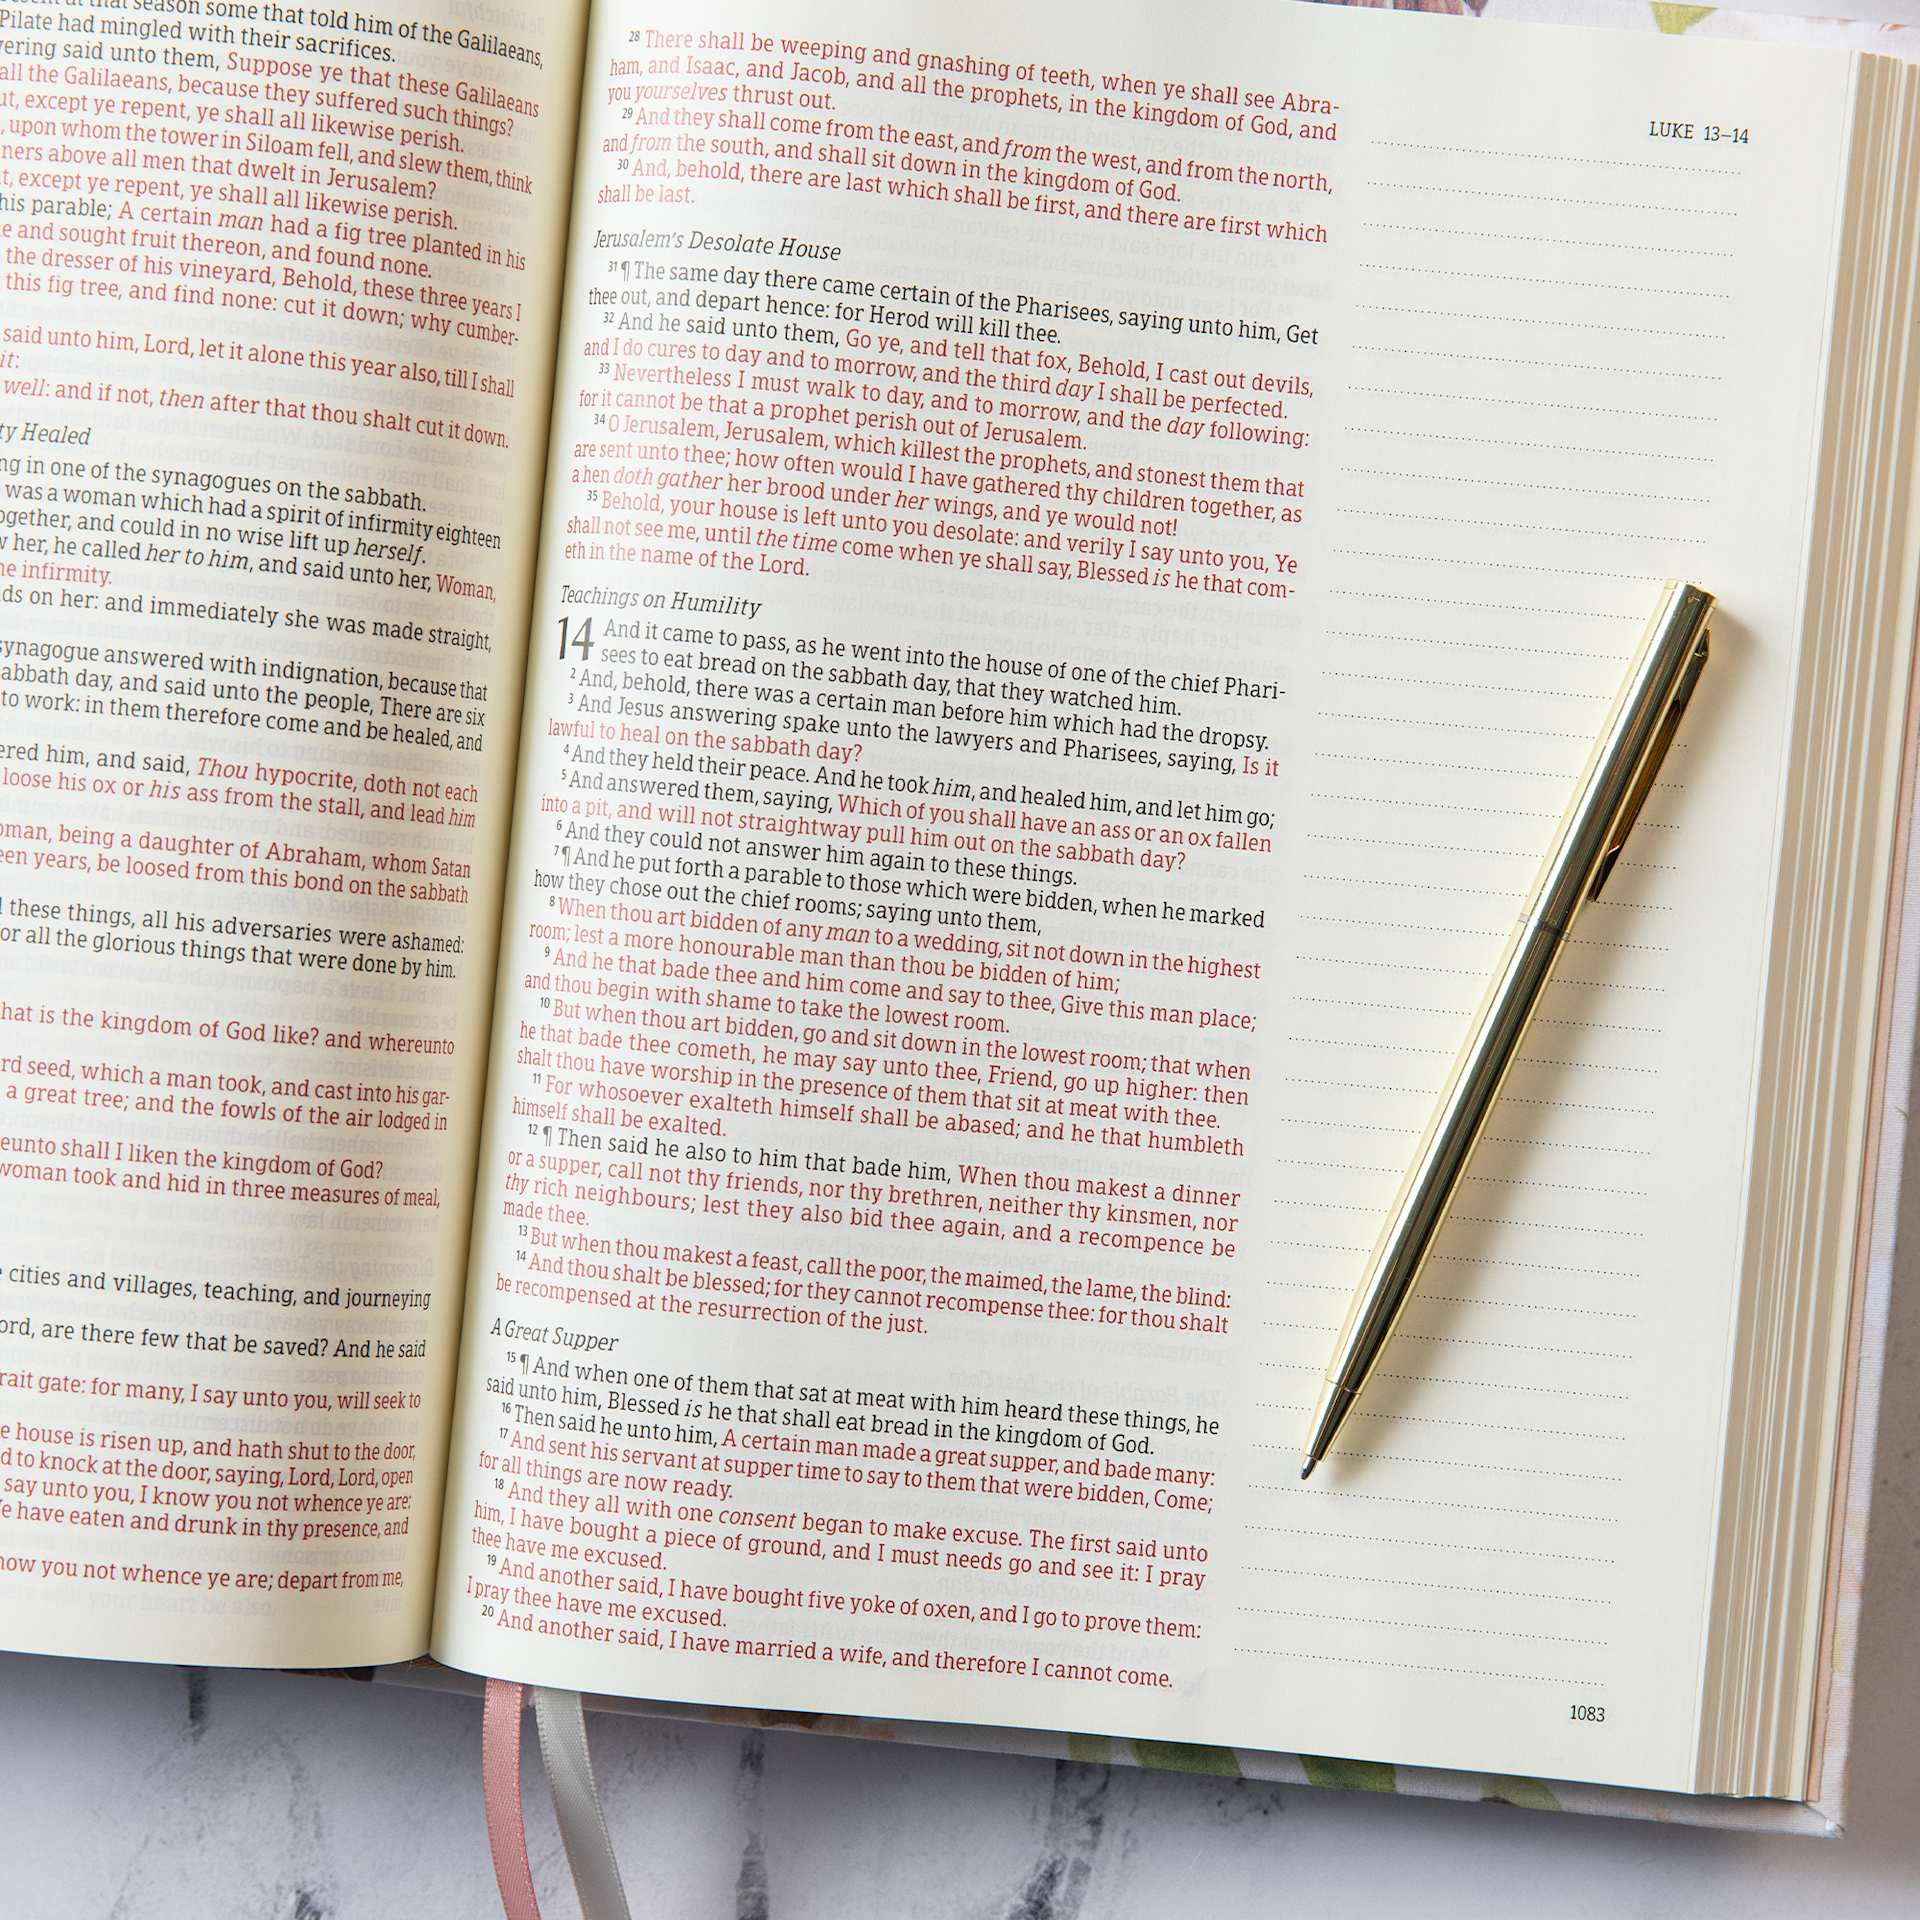 esent at that season some that told him of the Galilaeans,
Pilate had mingled with their sacrifices.
vering said unto them, Suppose ye that these Galilaeans
all the Galilaeans, because they suffered such things?
ut, except ye repent, ye shall all likewise perish.
, upon whom the tower in Siloam fell, and slew them, think
ners above all men that dwelt in Jerusalem?
t, except ye repent, ye shall all likewise perish.
his parable; A certain man had a fig tree planted in his
e and sought fruit thereon, and found none.
the dresser of his vineyard, Behold, these three years I
this fig tree, and find none: cut it down; why cumber-
said unto him, Lord, let it alone this year also, till I shall
it:
well: and if not, then after that thou shalt cut it down.
ty Healed
ng in one of the synagogues on the sabbath.
was a woman which had a spirit of infirmity eighteen
ogether, and could in no wise lift up herself.
w her, he called her to him, and said unto her, Woman,
ne infirmity.
ds on her: and immediately she was made straight,
synagogue answered with indignation, because that
abbath day, and said unto the people, There are six
to work: in them therefore come and be healed, and
ered him, and said, Thou hypocrite, doth not each
loose his ox or his ass from the stall, and lead him
oman, being a daughter of Abraham, whom Satan
een years, be loosed from this bond on the sabbath
l these things, all his adversaries were ashamed:
or all the glorious things that were done by him.
hat is the kingdom of God like? and whereunto
rd seed, which a man took, and cast into his gar-
a great tree; and the fowls of the air lodged in
eunto shall I liken the kingdom of God?
woman took and hid in three measures of meal,
e cities and villages, teaching, and journeying
ord, are there few that be saved? And he said
rait gate: for many, I say unto you, will seek to
e house is risen up, and hath shut to the door,
d to knock at the door, saying, Lord, Lord, open
say unto you, I know you not whence ye are:
Ve have eaten and drunk in thy presence, and
now you not whence ye are; depart from me,
LUKE 13–14
28 There shall be weeping and gnashing of teeth, when ye shall see Abra-
ham, and Isaac, and Jacob, and all the prophets, in the kingdom of God, and
you yourselves thrust out.
29 And they shall come from the east, and from the west, and from the north,
and from the south, and shall sit down in the kingdom of God.
30 And, behold, there are last which shall be first, and there are first which
shall be last.
Jerusalem's Desolate House
31 ¶ The same day there came certain of the Pharisees, saying unto him, Get
thee out, and depart hence: for Herod will kill thee.
32 And he said unto them, Go ye, and tell that fox, Behold, I cast out devils,
and I do cures to day and to morrow, and the third day I shall be perfected.
33 Nevertheless I must walk to day, and to morrow, and the day following:
for it cannot be that a prophet perish out of Jerusalem.
34 O Jerusalem, Jerusalem, which killest the prophets, and stonest them that
are sent unto thee; how often would I have gathered thy children together, as
a hen doth gather her brood under her wings, and ye would not!
35 Behold, your house is left unto you desolate: and verily I say unto you, Ye
shall not see me, until the time come when ye shall say, Blessed is he that com-
eth in the name of the Lord.
Teachings on Humility
14 And it came to pass, as he went into the house of one of the chief Phari-
sees to eat bread on the sabbath day, that they watched him.
2 And, behold, there was a certain man before him which had the dropsy.
3 And Jesus answering spake unto the lawyers and Pharisees, saying, Is it
lawful to heal on the sabbath day?
4 And they held their peace. And he took him, and healed him, and let him go;
5 And answered them, saying, Which of you shall have an ass or an ox fallen
into a pit, and will not straightway pull him out on the sabbath day?
6 And they could not answer him again to these things.
7 ¶ And he put forth a parable to those which were bidden, when he marked
how they chose out the chief rooms; saying unto them,
8 When thou art bidden of any man to a wedding, sit not down in the highest
room; lest a more honourable man than thou be bidden of him;
9 And he that bade thee and him come and say to thee, Give this man place;
and thou begin with shame to take the lowest room.
10 But when thou art bidden, go and sit down in the lowest room; that when
he that bade thee cometh, he may say unto thee, Friend, go up higher: then
shalt thou have worship in the presence of them that sit at meat with thee.
11 For whosoever exalteth himself shall be abased; and he that humbleth
himself shall be exalted.
12 ¶ Then said he also to him that bade him, When thou makest a dinner
or a supper, call not thy friends, nor thy brethren, neither thy kinsmen, nor
thy rich neighbours; lest they also bid thee again, and a recompence be
made thee.
13 But when thou makest a feast, call the poor, the maimed, the lame, the blind:
14 And thou shalt be blessed; for they cannot recompense thee: for thou shalt
be recompensed at the resurrection of the just.
A Great Supper
15 ¶ And when one of them that sat at meat with him heard these things, he
said unto him, Blessed is he that shall eat bread in the kingdom of God.
16 Then said he unto him, A certain man made a great supper, and bade many:
17 And sent his servant at supper time to say to them that were bidden, Come;
for all things are now ready.
18 And they all with one consent began to make excuse. The first said unto
him, I have bought a piece of ground, and I must needs go and see it: I pray
thee have me excused.
19 And another said, I have bought five yoke of oxen, and I go to prove them:
I pray thee have me excused.
20 And another said, I have married a wife, and therefore I cannot come.
1083